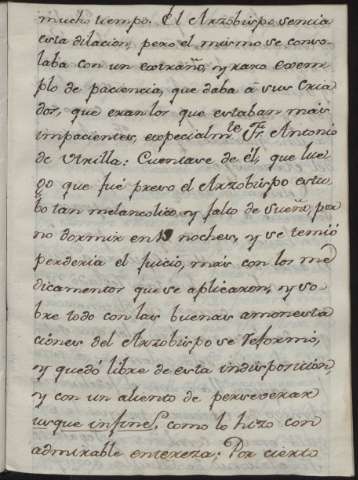 mucho tiempo. El Arzobispo sentia
esta dilacion, pero el mismo se conso-
laba con un extraño, y raro exem-
plo de paciencia, que daba á sus Cria-
dos, que eran los que estaban mas
impacientes, especialm.te Fr. Antonio
de Utrilla: Cuentase de él, que lue-
go que fué preso el Arzobispo estu-
bo tan melancolico, y falto de sueño, por
no dormir en 19 noches, y se temió
perderia el juicio, mas con los me-
dicamentos que se aplicaron, y so-
bre todo con las buenas amonesta-
ciones del Arzobispo se reformó,
y quedó libre de esta indisposicion,
y con un aliento de perseverar
usque in finem, como lo hizo con
admirable entereza: Por cierto